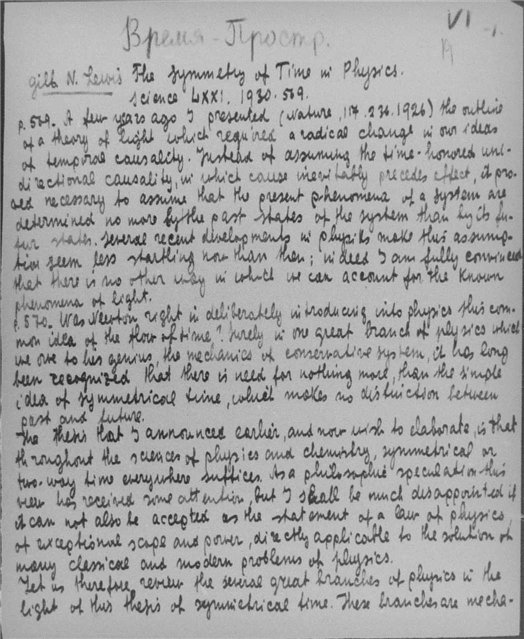 Время-Простр.
VI
-1.
Gilb. N. Lewis The Symmetry of Time in Physics.
Science LXXI. 1930. 569.
p. 569. A few years ago I presented (Nature, 117. 236. 1926) the outline
of a theory of light which required a radical change in our ideas
of temporal causality. Instead of assuming the time-honored uni-
directional causality, in which cause inevitably precedes effect, it pro-
ved necessary to assume that the present phenomena of a system are
determined no more by the past states of the system than by its fu-
ture states. Several recent developments in physics make this assump-
tion seem less startling now than then; indeed I am fully convinced
that there is no other way in which we can account for the known
phenomena of light.
p. 570. Was Newton right in deliberately introducing into physics this com-
mon idea of the flow of time,? Surely in one great branch of physics which
we owe to his genius, the mechanics of conservative system, it has long
been recognized that there is need for nothing more, than the simple
idea of symmetrical time, which makes no distinction between
past and future.
The thesis that I announced earlier, and now wish to elaborate, is that
throughout the sciences of physics and chemistry, symmetrical or
two-way time everywhere suffices. As a philosophic speculation this
view has received some attention, but I shall be much disappointed if
it can not also be accepted as the statement of a law of physics,
of exceptional scope and power, directly applicable to the solution of
many classical and modern problems of physics.
Let us therefore, review the several great branches of physics in the
light of this thesis of symmetrical time. These branches are mecha-